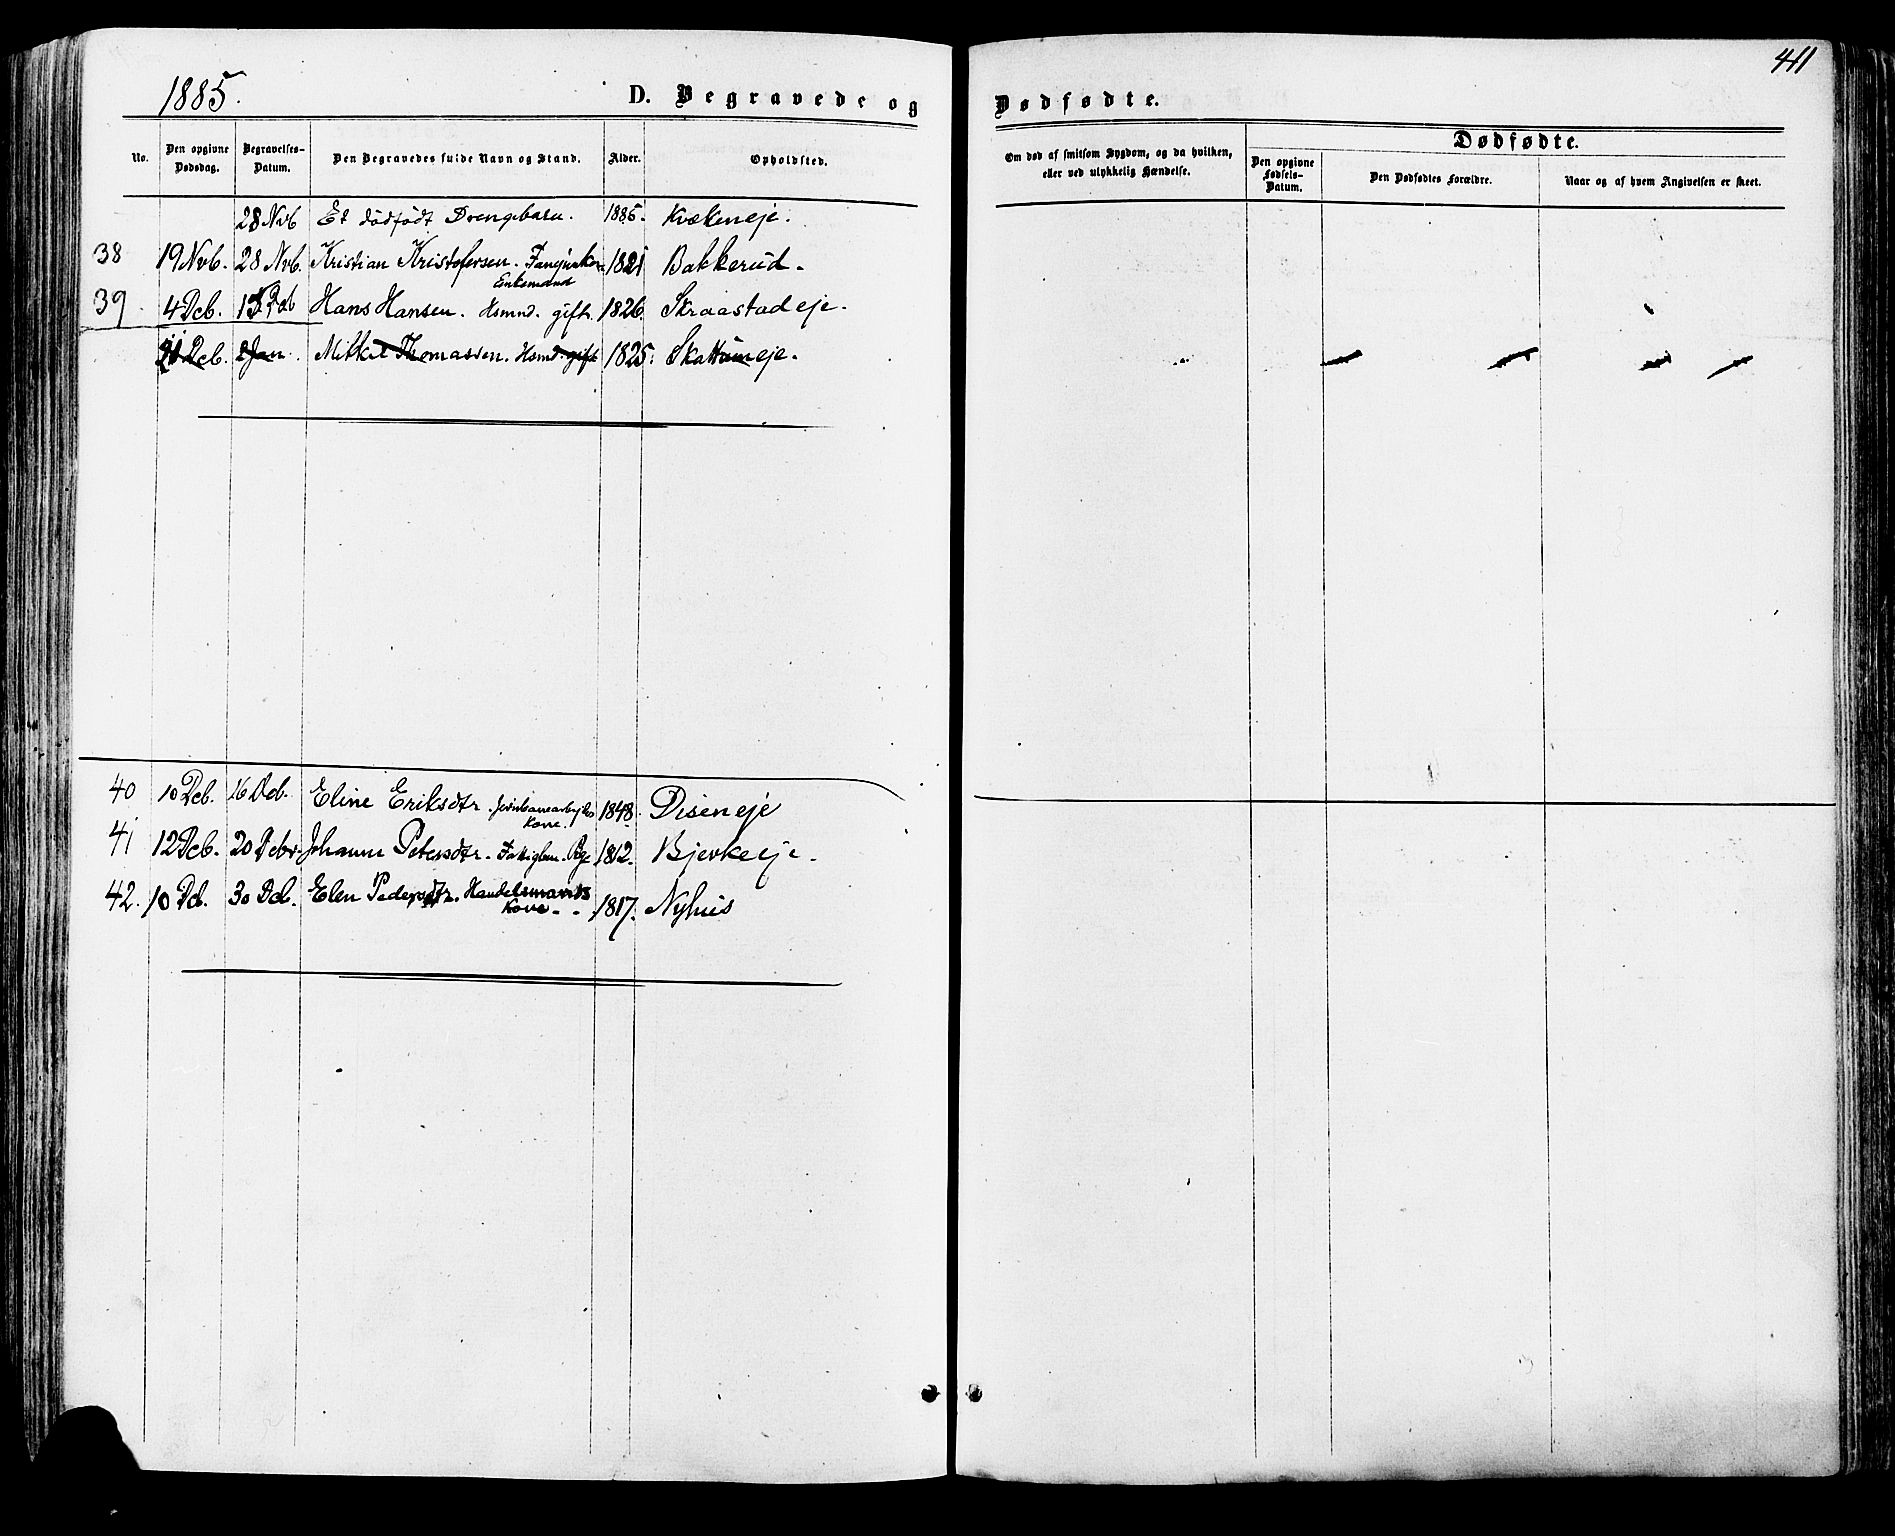 1885.
D. Begravede og
No.
Den opgivne Dødsdag.
Begravelses-Datum.
Den Begravedes fulde Navn og Stand.
Alder.
Opholdsted.
28 Nvb Et dödfödt Drengebarn. 1885. Kvækeneje.
38 19 Nvb. 28 Nvb. Kristian Kristofersen. 1821 Bakkerud.
Enkemand
39. 4 Dcb. Hans Hansen. Hsmnd. gift. 1826. Skraastadeje.
31 Dcb. 2 Jan. Mikkel Thomassen. Hsmd. gift 1825. Skattumeje.
40 10 Dcb. 16 Dcb. Eline Eriksdtr. Jernbanearbejders 1848. Diseneje
Kone.
41 12 Dcb. 20 Dcbr. Johanne Petersdtr. Fattiglem. Pge 1812. Bjerkeeje.
42. 10 Dcb. 30 Dcb. Elen Pedersdtr. Handelsmands 1817. Nyhus
Kone
411
Dødfødte.
Om død af smitsom Sygdom, og da hvilken,
eller ved ulykkelig Hændelse.
Dødfødte.
Den opgivne Fødsels-Datum.
Den Dødfødtes Forældre.
Naar og af hvem Angivelsen er skeet.